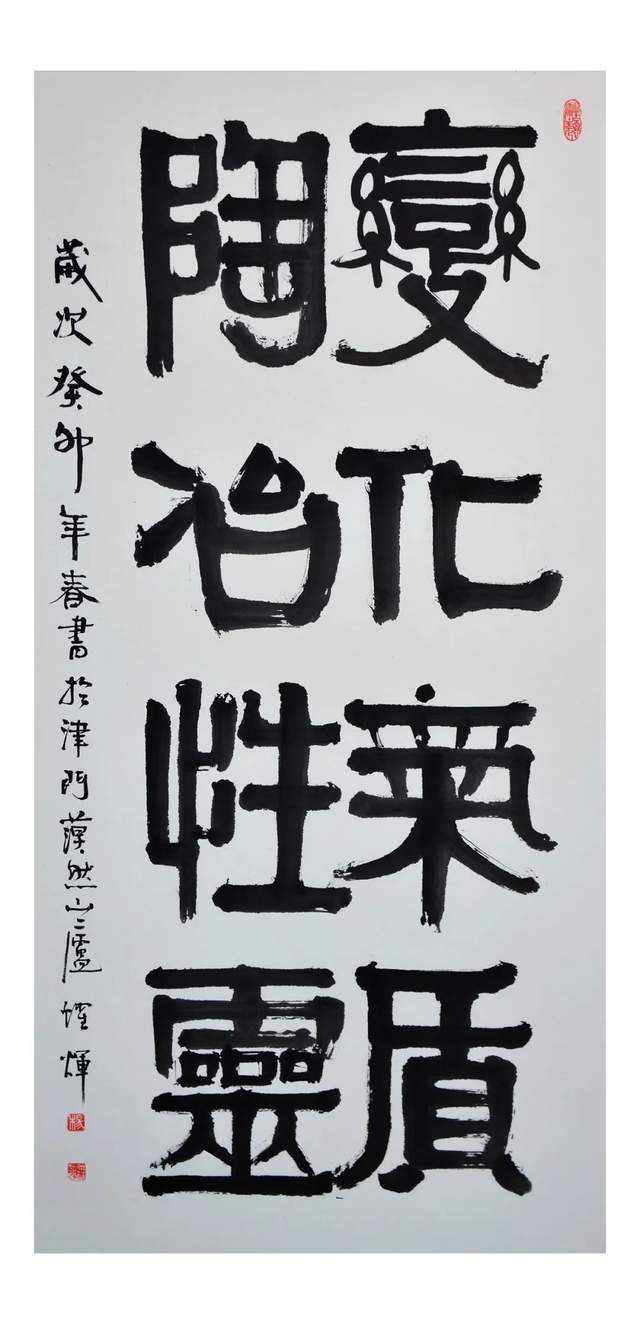 變化氣質
陶冶性靈
歲次癸卯年春書於津門蓂然山廬煃輝